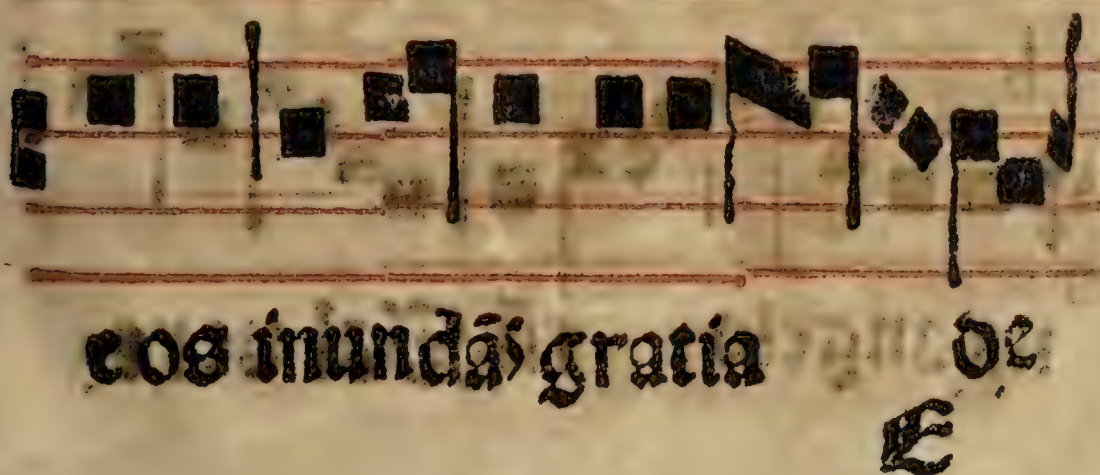 eos inundãs gratia de
E